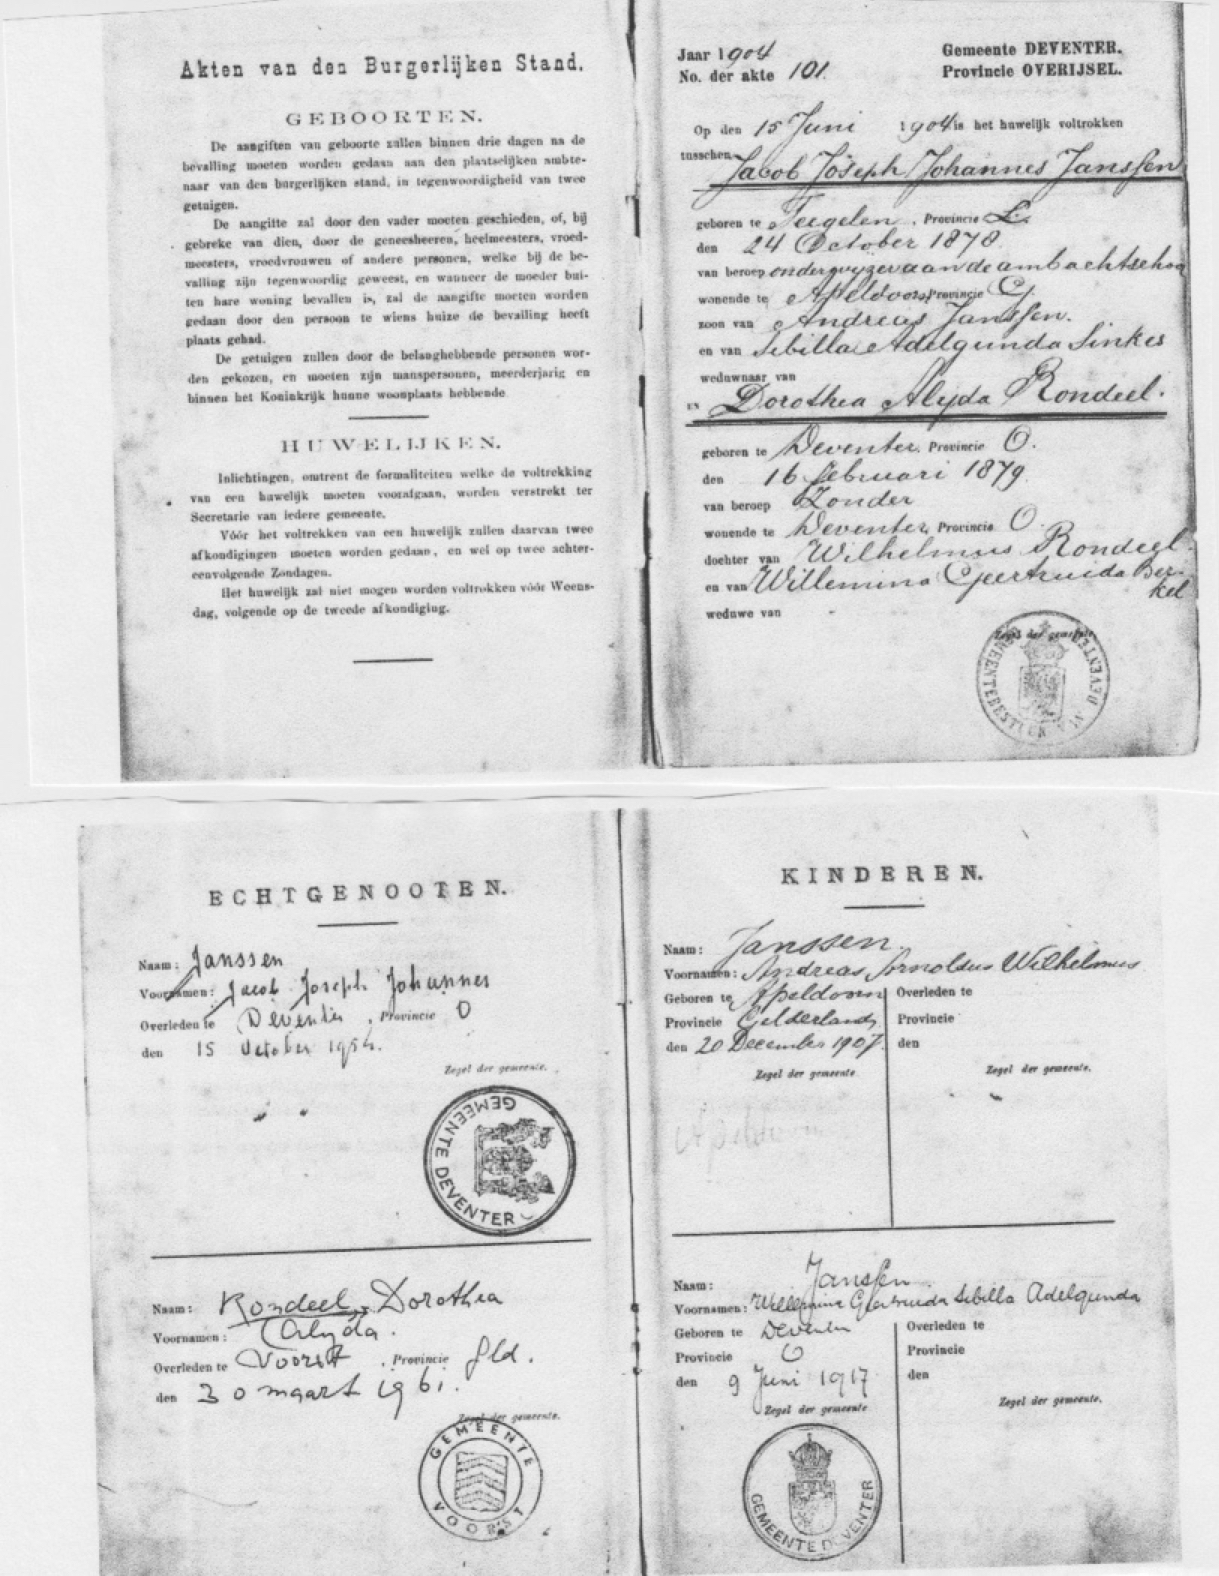 Akten van den Burgerlijken Stand.
GEBOORTEN.
De aangiften van geboorte zullen binnen drie dagen na de
bevalling moeten worden gedaan aan den plaatselijken ambte-
naar van den burgerlijken stand, in tegenwoordigheid van twee
getuigen.
De aangifte zal door den vader moeten geschieden, of, bij
gebreke van dien, door de geneesheeren, heelmeesters, vroed-
meesters, vroedvrouwen of andere personen, welke bij de be-
valling zijn tegenwoordig geweest, en wanneer de moeder bui-
ten hare woning bevallen is, zal de aangifte moeten worden
gedaan door den persoon te wiens huize de bevalling heeft
plaats gehad.
De getuigen zullen door de belanghebbende personen wor-
den gekozen, en moeten zijn manspersonen, meerderjarig en
binnen het Koninkrijk hunne woonplaats hebbende
HUWELIJKEN.
Inlichtingen, omtrent de formaliteiten welke de voltrekking
van een huwelijk moeten voorafgaan, worden verstrekt ter
Secretarie van iedere gemeente.
Vóór het voltrekken van een huwelijk zullen daarvan twee
afkondigingen moeten worden gedaan, en wel op twee achter-
eenvolgende Zondagen.
Het huwelijk zal niet mogen worden voltrokken vóór Woens-
dag, volgende op de tweede afkondiging.
Jaar 1904
No. der akte 101.
Gemeente DEVENTER.
Provincie OVERIJSEL.
Op den 15 Juni 1904 is het huwelijk voltrokken
tusschen Jacob Joseph Johannes Janssen
geboren te Tegelen, Provincie L.
den 24 October 1878.
van beroep onderwijzer aan de ambachtschool
wonende te Apeldoorn Provincie G.
zoon van Andreas Janssen.
en van Sibilla Adelgunda Sinkes
weduwnaar van
EN Dorothea Alyda Rondeel.
geboren te Deventer, Provincie O.
den 16 februari 1879.
van beroep Zonder
wonende te Deventer, Provincie O.
dochter van Wilhelmus Rondeel
en van Willemina Geertruida Ber-
kel
weduwe van
Zegel der gemeente
GEMEENTEBESTUUR VAN DEVENTER
ECHTGENOOTEN.
Naam: Janssen
Voornamen: Jacob Joseph Johannes
Overleden te Deventer, Provincie O
den 15 October 1954.
Zegel der gemeente.
GEMEENTE DEVENTER
Naam: Rondeel, Dorothea
Voornamen: Alyda.
Overleden te Voorst, Provincie Gld.
den 30 maart 1961.
Zegel der gemeente.
GEMEENTE VOORST
KINDEREN.
Naam: Janssen.
Voornamen: Andreas Arnoldus Wilhelmus
Geboren te Apeldoorn Overleden te
Provincie Gelderland, Provincie
den 20 December 1907. den
Zegel der gemeente Zegel der gemeente.
Apeldoorn
Naam: Janssen
Voornamen: Willemina Geertruida Sibilla Adelgunda
Geboren te Deventer Overleden te
Provincie O Provincie
den 9 Juni 1917 den
Zegel der gemeente Zegel der gemeente.
GEMEENTE DEVENTER